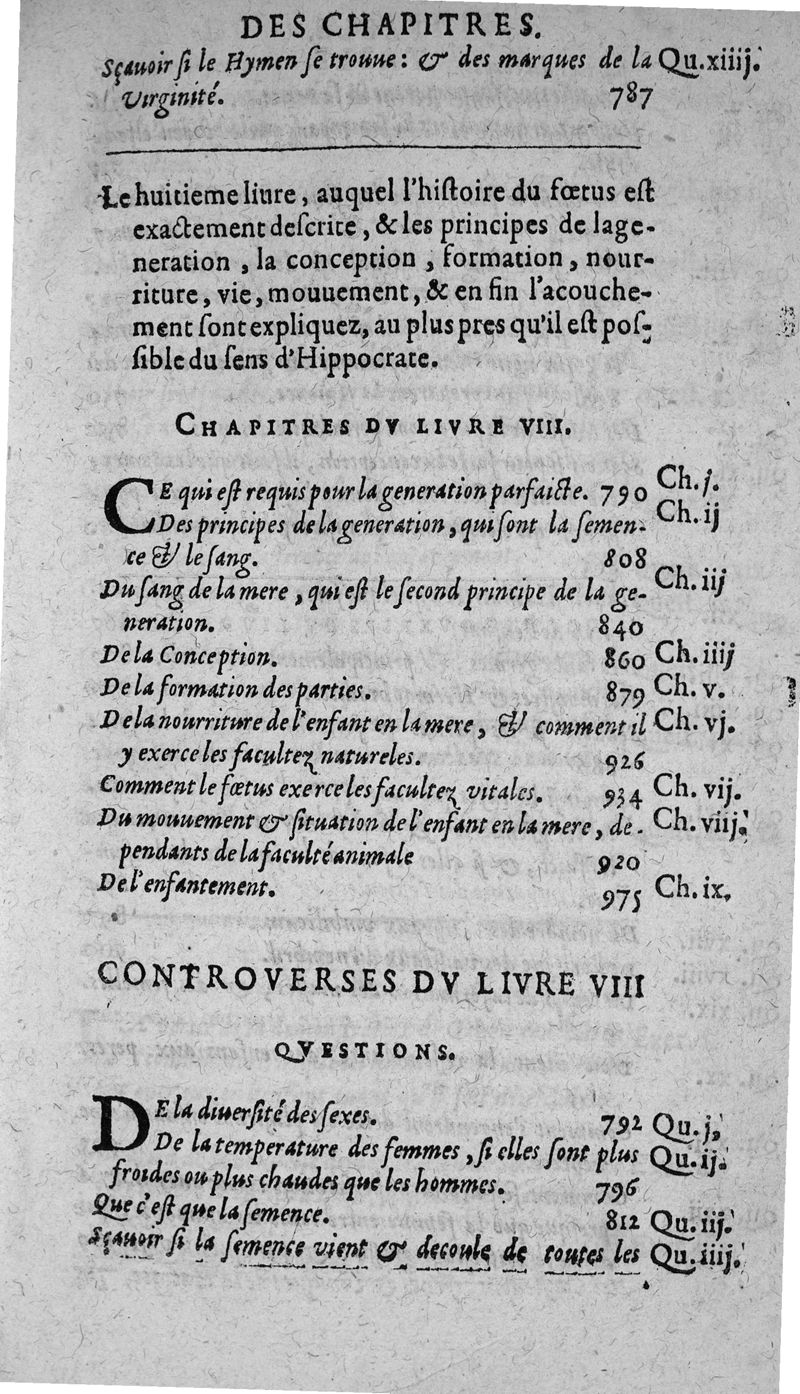 DES CHAPITRES.
Sçauoir ſi le Hymen ſe trouue : & des marques de la Qu.xiiij.
Virginité. 787
Le huitieme liure, auquel l'hiſtoire du fœtus eſt
exactement deſcrite, & les principes de la ge-
neration, la conception, formation, nour-
riture, vie, mouuement, & en fin l'acouche-
ment ſont expliquez, au plus pres qu'il eſt poſ-
ſible du ſens d'Hippocrate.
CHAPITRES DV LIVRE VIII.
CE qui eſt requis pour la generation parfaicte. 790 Ch.j.
Des principes de la generation, qui ſont la ſemen- Ch.ij
ce & le ſang. 808
Du ſang de la mere, qui eſt le ſecond principe de la ge- Ch.iij
neration. 840
De la Conception. 860 Ch.iiij
De la formation des parties. 879 Ch. v.
De la nourriture de l'enfant en la mere, & comment il Ch. vj.
y exerce les facultez natureles. 926
Comment le fœtus exerce les facultez vitales. 934 Ch. vij.
Du mouuement & ſituation de l'enfant en la mere, de- Ch. viij.
pendants de la faculté animale 920
De l'enfantement. 975 Ch. ix.
CONTROVERSES DV LIVRE VIII
QVESTIONS.
DE la diuerſité des ſexes. 792 Qu.j.
De la temperature des femmes, ſi elles ſont plus Qu.ij.
froides ou plus chaudes que les hommes. 796
Que c'eſt que la ſemence. 812 Qu.iij.
Sçauoir ſi la ſemence vient & decoule de toutes les Qu.iiij.